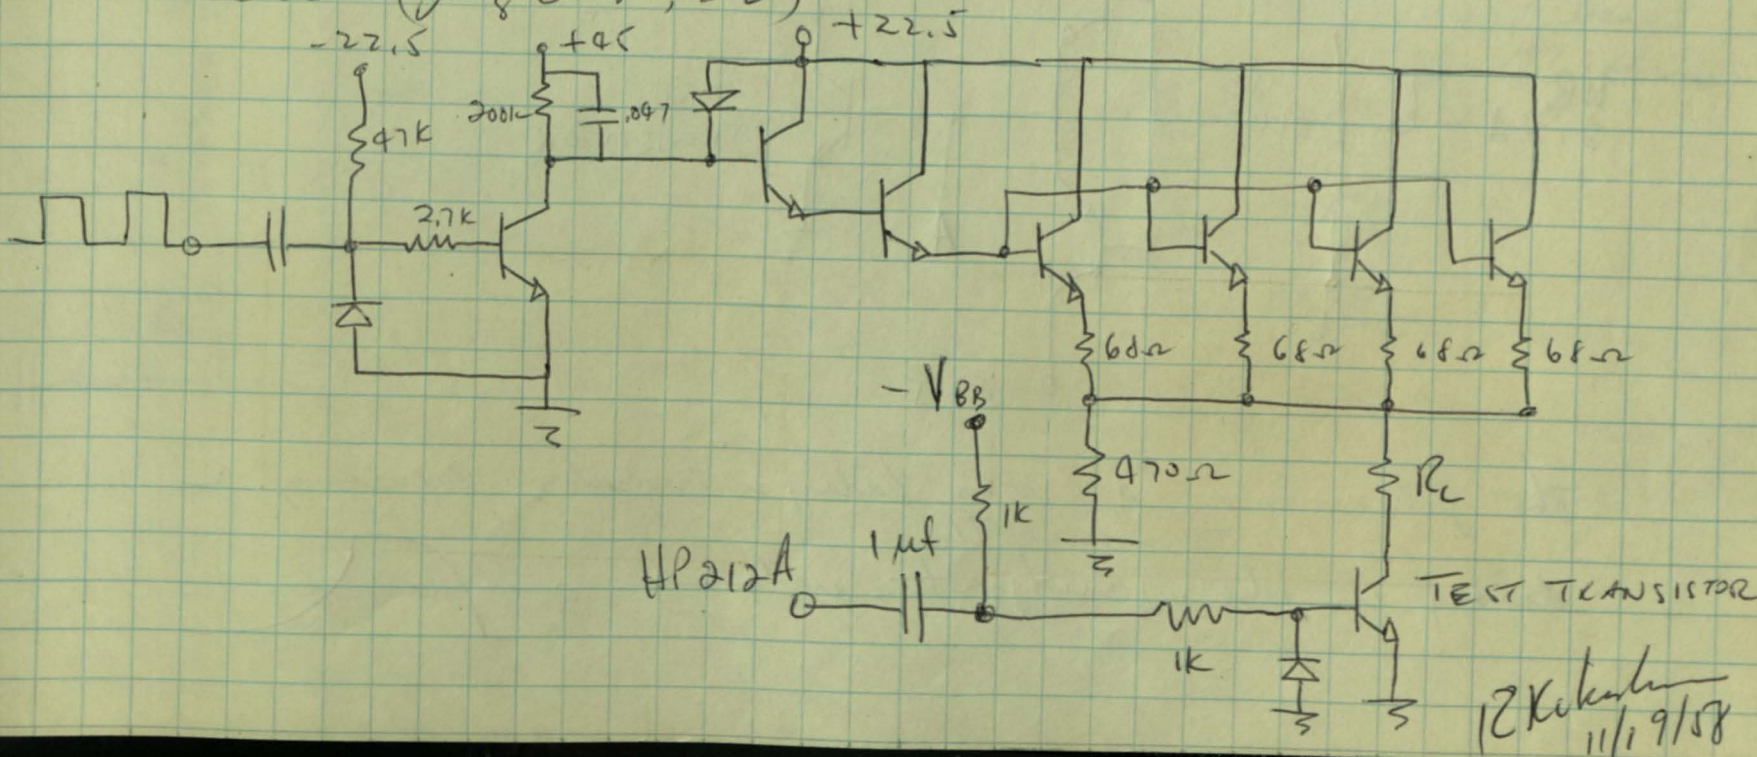 -22.5
+45
+22.5
200K
.047
47K
2.7K
68Ω
68Ω
68Ω
68Ω
-VBB
470Ω
RL
1K
1µf
HP212A
TEST TRANSISTOR
1K
11/19/58